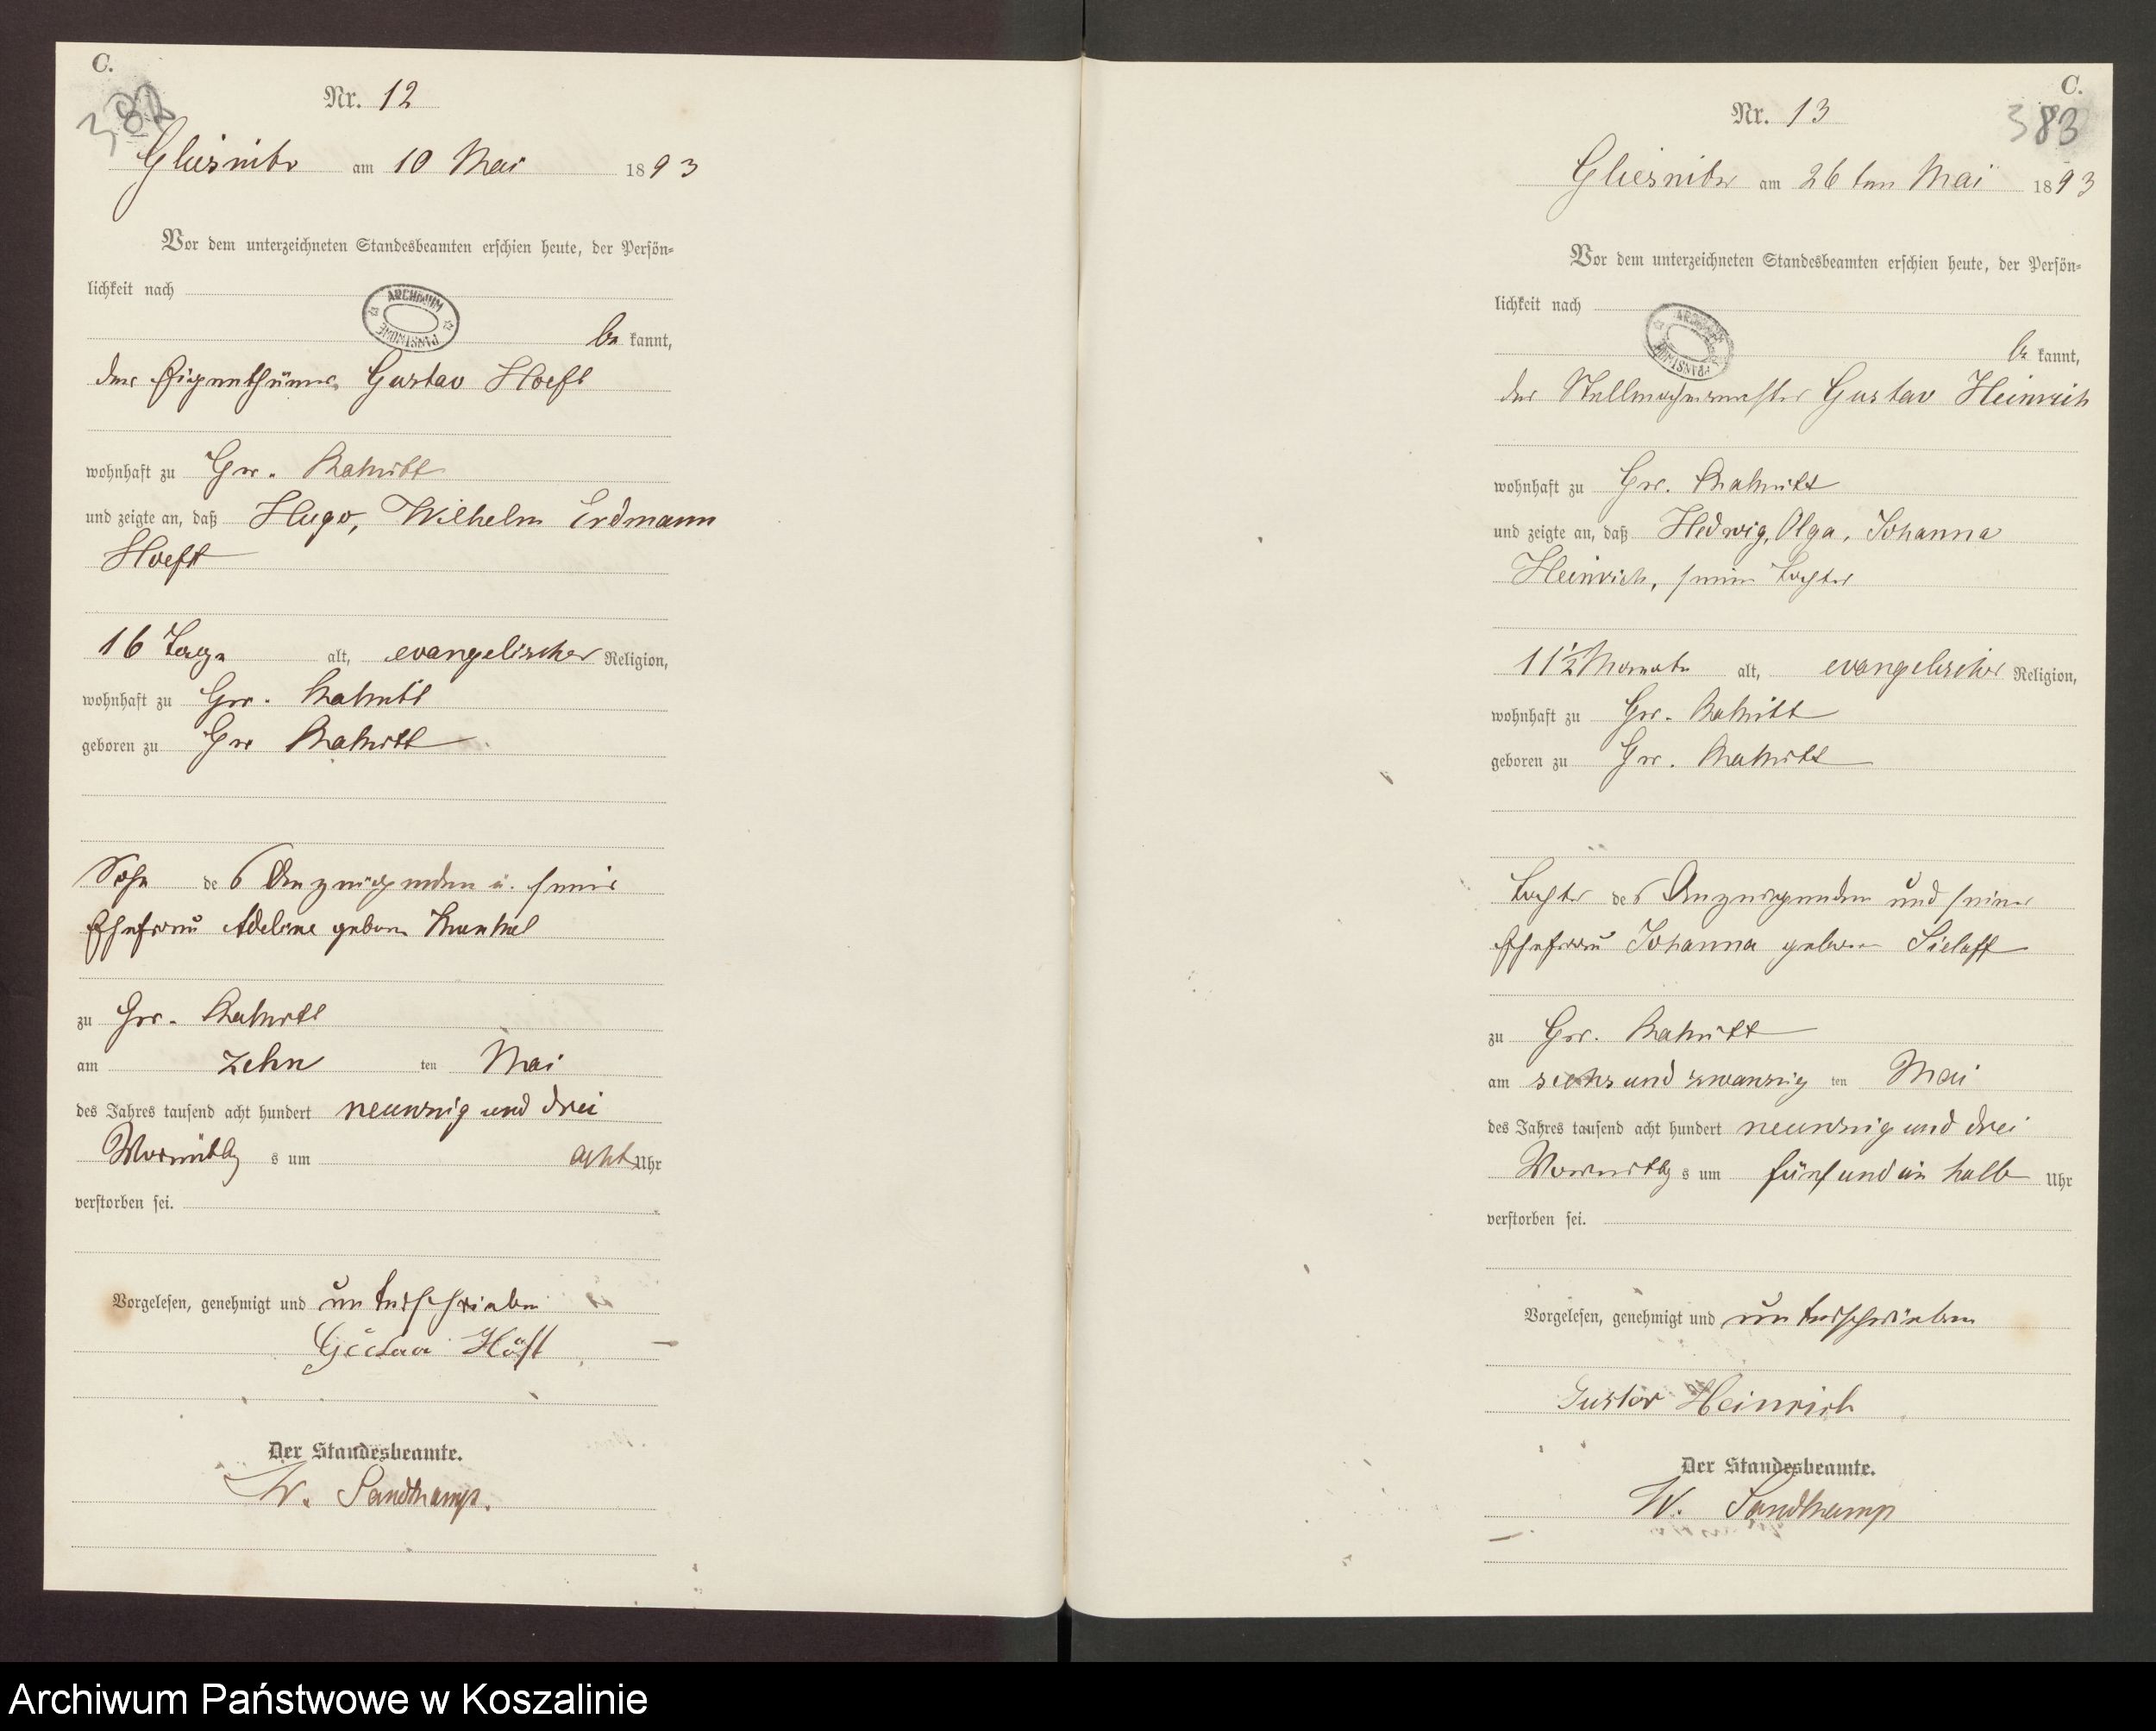 C.
382
Nr. 12
Gliesnitz am 10 Mai 1893
Vor dem unterzeichneten Standesbeamten erschien heute, der Persön-
lichkeit nach
be kannt,
der Eigenthümer Gustav Hoeft
wohnhaft zu Gr. Rakitt
und zeigte an, daß Hugo, Wilhelm Erdmann
Hoeft
16 Tage alt, evangelischer Religion,
wohnhaft zu Gr. Rakitt
geboren zu Gr Rakitt
Sohn des Anzeigenden u. seiner
Ehefrau Adeline geboren Kunkel
zu Gr. Rakitt
am zehn ten Mai
des Jahres tausend acht hundert neunzig und drei
Vormittag s um acht Uhr
verstorben sei.
Vorgelesen, genehmigt und unterschrieben
Gustav Höft
Der Standesbeamte.
W. Sandkamp.
ARCHIWUM PAŃSTWOWE
C.
383
Nr. 13
Gliesnitz am 26 ten Mai 1893
Vor dem unterzeichneten Standesbeamten erschien heute, der Persön-
lichkeit nach
be kannt,
der Stellmachermeister Gustav Heinrich
wohnhaft zu Gr. Rakitt
und zeigte an, daß Hedwig, Olga, Johanna
Heinrich, seine Tochter
11 1/2 Monate alt, evangelischer Religion,
wohnhaft zu Gr. Rakitt
geboren zu Gr. Rakitt
Tochter des Anzeigenden und seiner
Ehefrau Johanna geboren Sielaff
zu Gr. Rakitt
am sechs und zwanzig ten Mai
des Jahres tausend acht hundert neunzig und drei
Vormittag s um fünf und ein halb Uhr
verstorben sei.
Vorgelesen, genehmigt und unterschrieben
Gustav Heinrich
Der Standesbeamte.
W. Sandkamp
ARCHIWUM PAŃSTWOWE
Archiwum Państwowe w Koszalinie